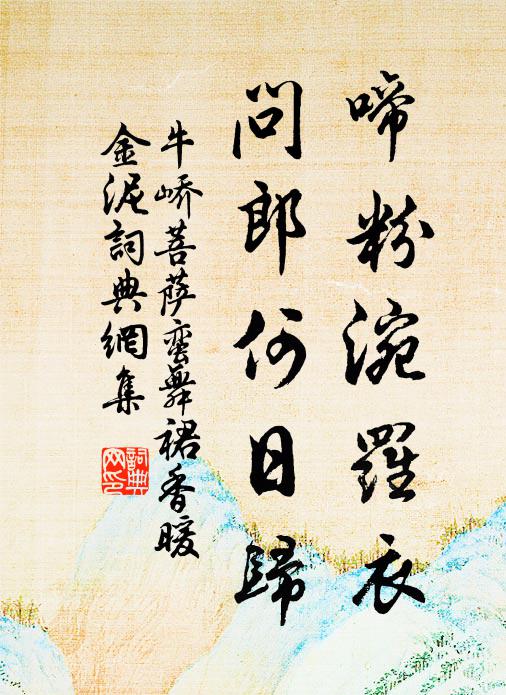 啼粉涴羅衣
問郎何日歸
牛嶠菩薩蠻舞裙香暖
金泥詞典網集
詞典网印